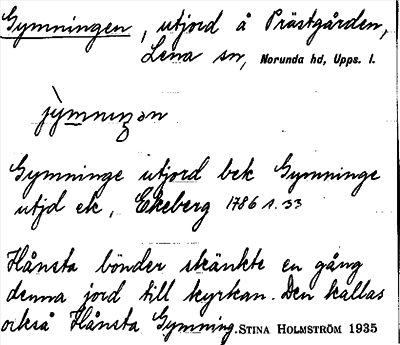 Gymningen, utjord å Prästgården,
Lena sn, Norunda hd, Upps. l.
jỳmniŋən
Gymninge utjord bek Gymninge
utjd ek, Ekeberg 1786 s. 33
Hånsta bönder skänkte en gång
denna jord till kyrkan. Den kallas
också Hånsta Gymning. STINA HOLMSTRÖM 1935